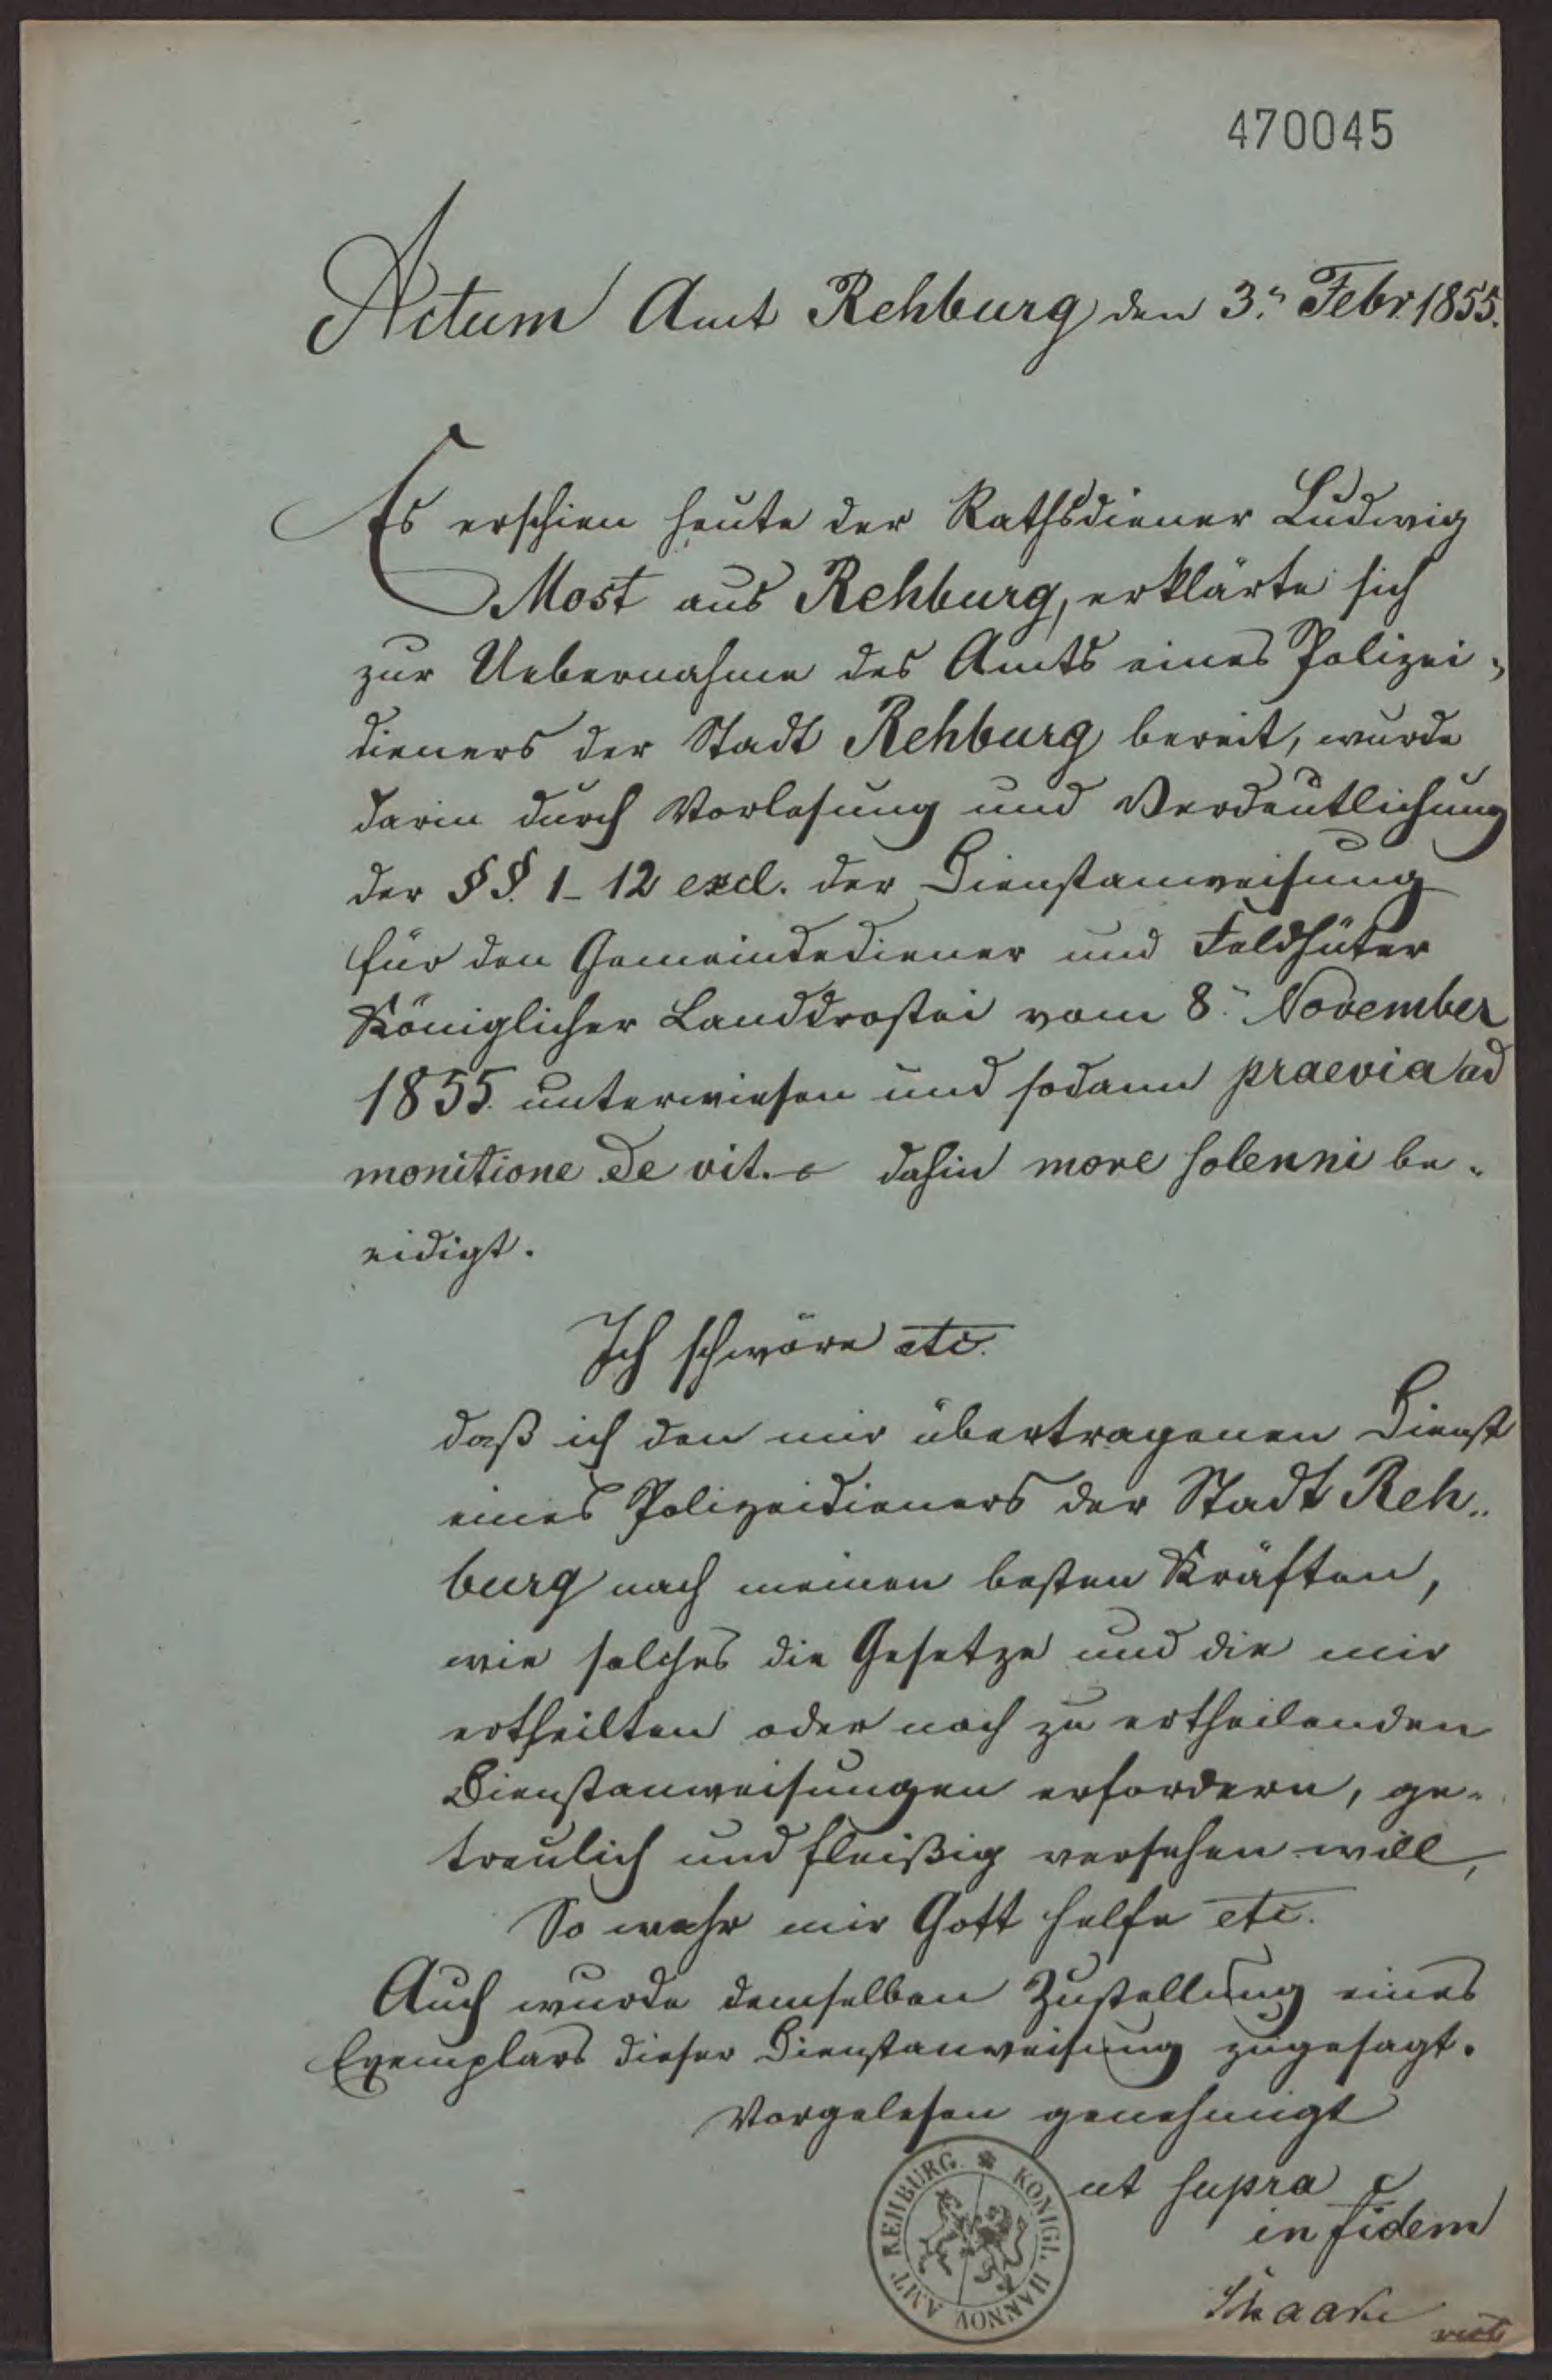 470045
Actum Amt Rehburg den 3.n Febr. 1855.
Es erschien heute der Rathsdiener Ludwig
Most aus Rehburg, erklärte sich
zur Uebernahme des Amts eines Polizei-
dieners der Stadt Rehburg bereit, wurde
darin durch Vorlesung und Verdeutlichung
der §§. 1-12 excl. der Dienstanweisung
für den Gemeindediener und Feldhüter
Königlicher Landdrostei vom 8. November
1855. unterwiesen und sodann praevia ad
monitione de vit. dahin more solenni be-
eidigt.
Ich schwöre etc.
daß ich den mir übertragenen Dienst
eines Polizeidieners der Stadt Reh-
burg nach meinen besten Kräften,
wie solches die Gesetze und die mir
ertheilten oder noch zu ertheilenden
Dienstanweisungen erfordern, ge-
treulich und fleißig versehen will,
So wahr mir Gott helfe etc.
Auch wurde demselben Zustellung eines
Exemplars dieser Dienstanweisung zugesagt.
Vorgelesen genehmigt
ut supra
in fidem
KÖNIGL. HANNOV. AMT REHBURG.